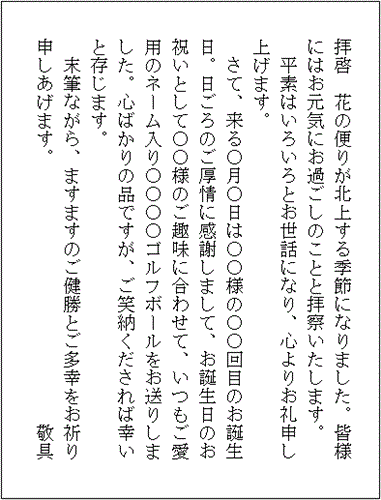 拝啓　花の便りが北上する季節になりました。皆様
にはお元気にお過ごしのことと拝察いたします。
　平素はいろいろとお世話になり、心よりお礼申し
上げます。
　さて、来る〇月〇日は〇〇様の〇〇回目のお誕生
日。日ごろのご厚情に感謝しまして、お誕生日のお
祝いとして〇〇様のご趣味に合わせて、いつもご愛
用のネーム入り〇〇〇〇ゴルフボールをお送りしま
した。心ばかりの品ですが、ご笑納くだされば幸い
と存じます。
　末筆ながら、ますますのご健勝とご多幸をお祈り
申しあげます。　　　　　　　　　　　　　敬具